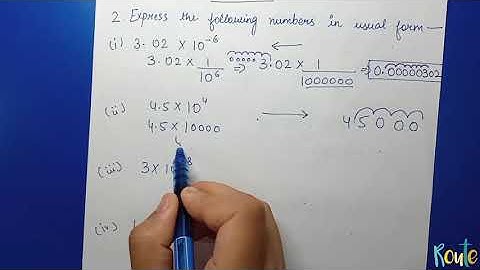 2. Express the following numbers in usual form —
(i) 3.02 × 10⁻⁶ ←
3.02 × 1/10⁶ ⇒ 3.02 × 1/1000000 ⇒ 0.00000302
(ii) 4.5 × 10⁴
4.5 × 10000 → 45000
(iii) 3 × 10
(iv)
Route